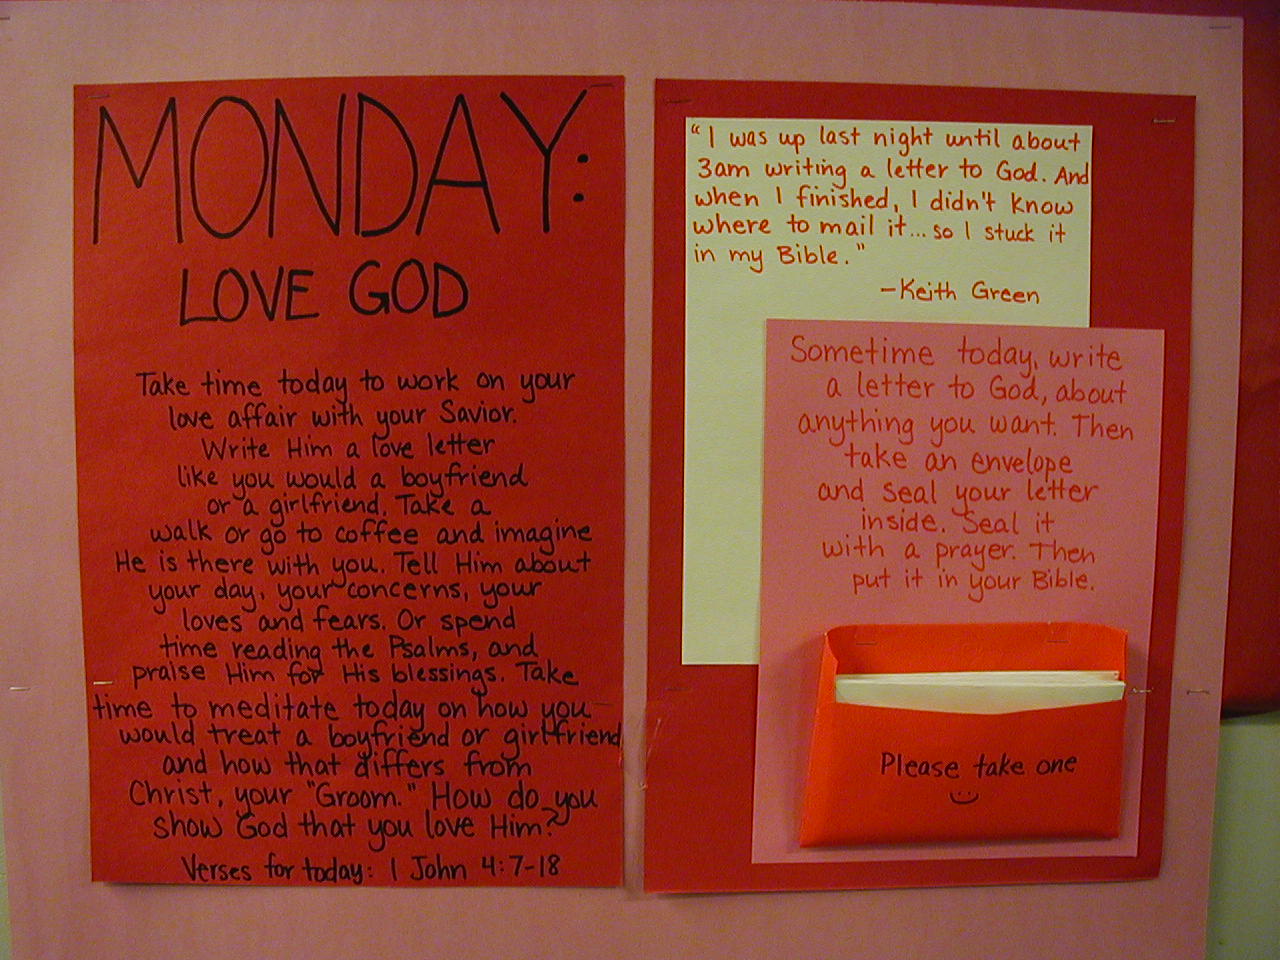 MONDAY:
LOVE GOD
Take time today to work on your
love affair with your Savior.
Write Him a love letter
like you would a boyfriend
or a girlfriend. Take a
walk or go to coffee and imagine
He is there with you. Tell Him about
your day, your concerns, your
loves and fears. Or spend
time reading the Psalms, and
praise Him for His blessings. Take
time to meditate today on how you
would treat a boyfriend or girlfriend
and how that differs from
Christ, your "Groom." How do you
show God that you love Him?
Verses for today: 1 John 4:7-18
"I was up last night until about
3am writing a letter to God. And
when I finished, I didn't know
where to mail it... so I stuck it
in my Bible."
-Keith Green
Sometime today, write
a letter to God, about
anything you want. Then
take an envelope
and seal your letter
inside. Seal it
with a prayer. Then
put it in your Bible.
Please take one